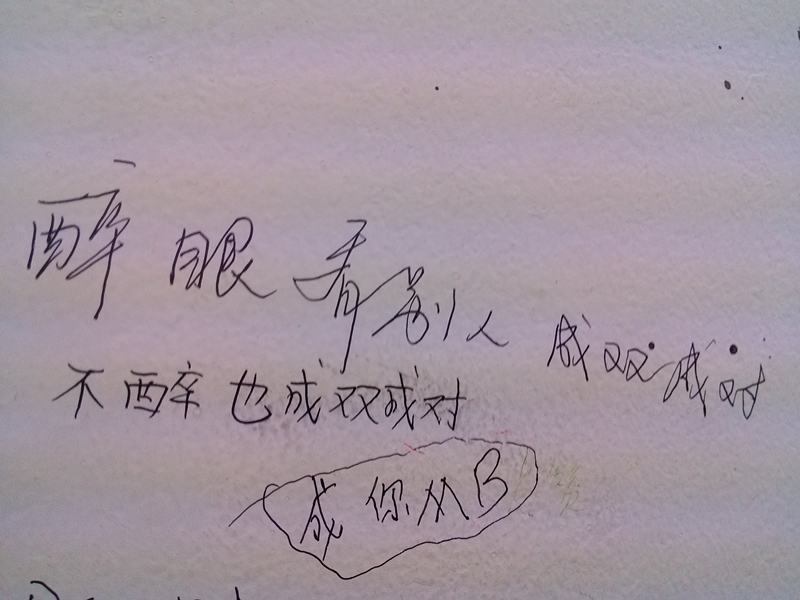 醉眼看别人成双成对
不醉也成双成对
成你从B